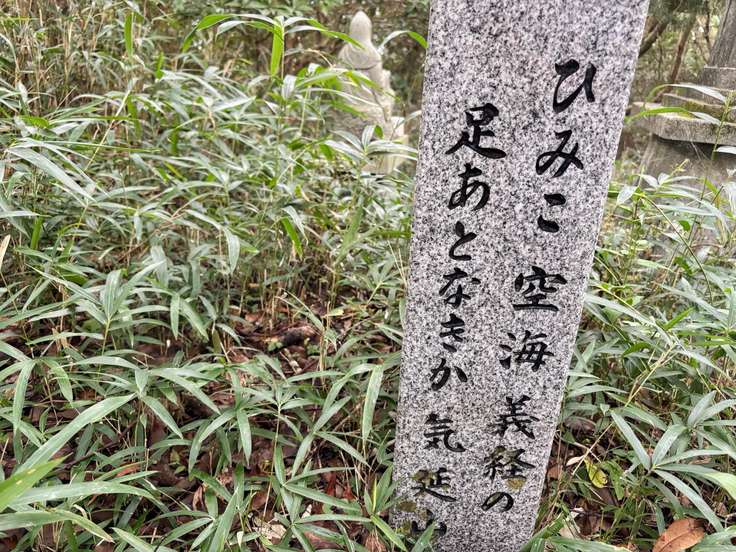 ひみこ 空海 義経の
足あとなきか 気延山